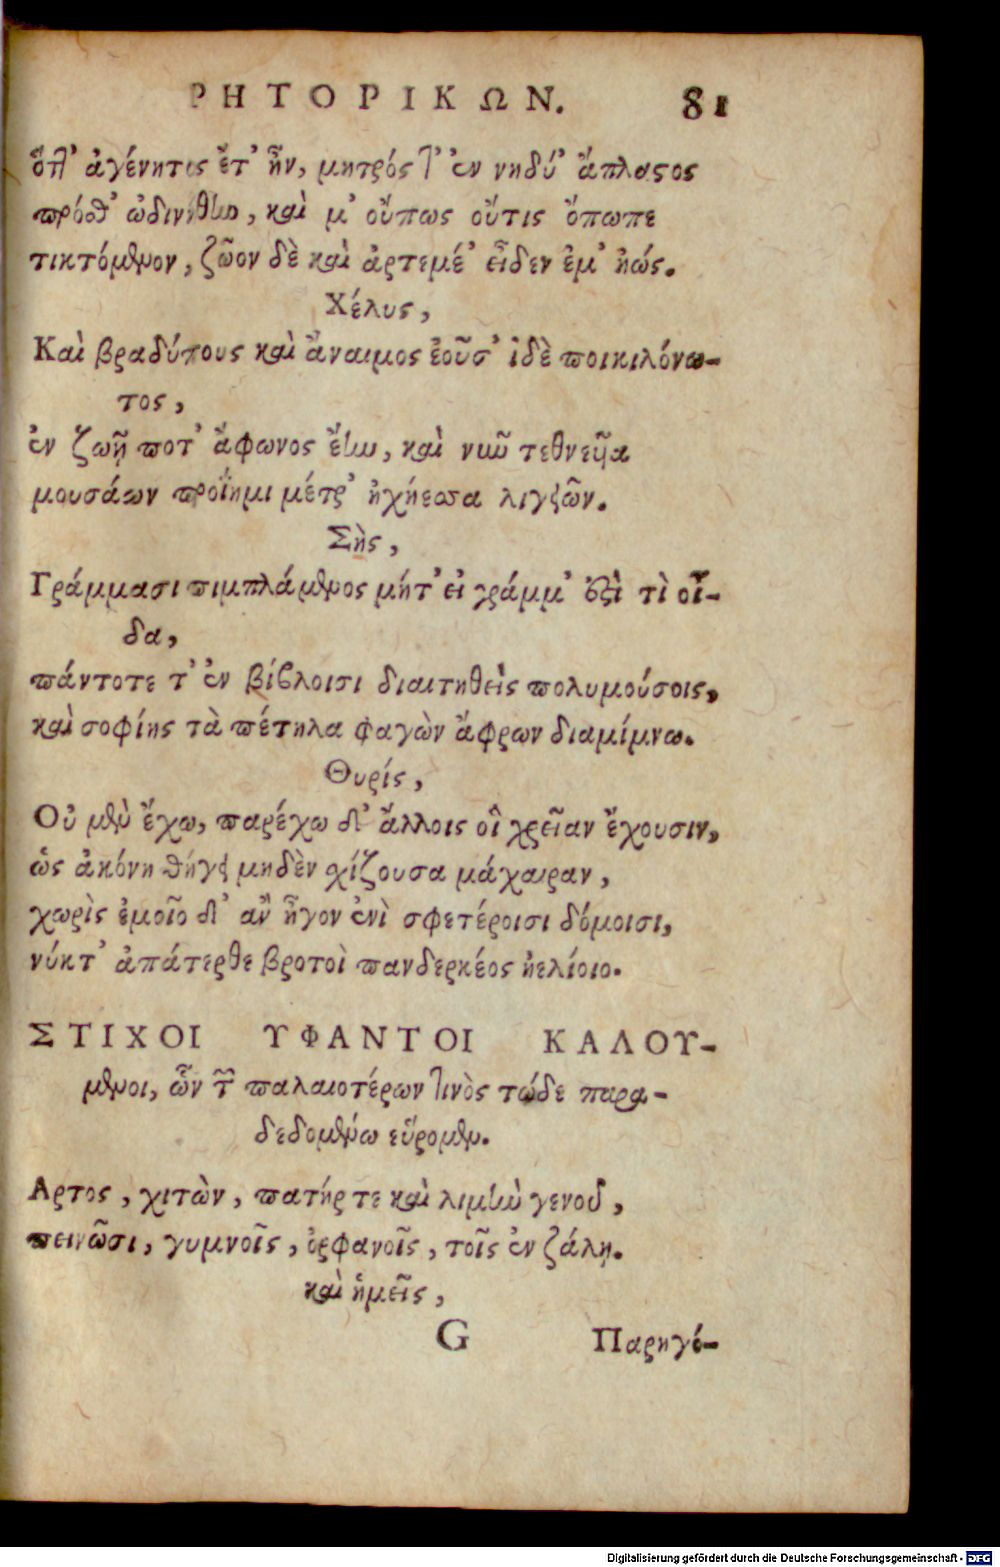 ΡΗΤΟΡΙΚΩΝ. 81
ὅτ' ἀγένητις ἔτ' ἦν, μητρός τ' ἐν νηδύ' ἄπλαστος
πρόσθ' ὠδινήθην, καὶ μ' οὔπως οὔτις ὄπωπε
τικτόμενον, ζῶον δὲ καὶ ἀρτεμέ' εἶδεν ἐμ' ἠώς.
Χέλυς,
Καὶ βραδύπους καὶ ἄναιμος ἐοῦσ' ἰδὲ ποικιλόνω-
τος,
ἐν ζωῇ ποτ' ἄφωνος ἔην, καὶ νῦν τεθνεῖα
μουσάων προΐημι μέτρ' ἠχήεσσα λιγξῶν.
Σὴς,
Γράμμασι πιμπλάμενος μήτ' εἰ γράμμ' ἐστὶ τὶ οἶ-
δα,
πάντοτε τ' ἐν βίβλοισι διαιτηθεὶς πολυμούσοις,
καὶ σοφίης τὰ πέτηλα φαγὼν ἄφρων διαμίμνω.
Θυρίς,
Οὐ μὲν ἔχω, παρέχω δ' ἄλλοις οἳ χρεῖαν ἔχουσιν,
ὡς ἀκόνη θήγει μηδὲν σχίζουσα μάχαιραν,
χωρὶς ἐμοῖο δ' ἂν ἦγον ἐνὶ σφετέροισι δόμοισι,
νύκτ' ἀπάτερθε βροτοὶ πανδερκέος ἠελίοιο.
ΣΤΙΧΟΙ ΥΦΑΝΤΟΙ ΚΑΛΟΥ-
μενοι, ὧν τῶν παλαιοτέρων τινὸς τώδε παρα-
δεδομένω εὕρομεν.
Αρτος, χιτὼν, πατήρ τε καὶ λιμὴν γενοῦ,
πεινῶσι, γυμνοῖς, ὀρφανοῖς, τοῖς ἐν ζάλῃ.
καὶ ἡμεῖς,
G Παρηγό-
Digitalisierung gefördert durch die Deutsche Forschungsgemeinschaft - DFG